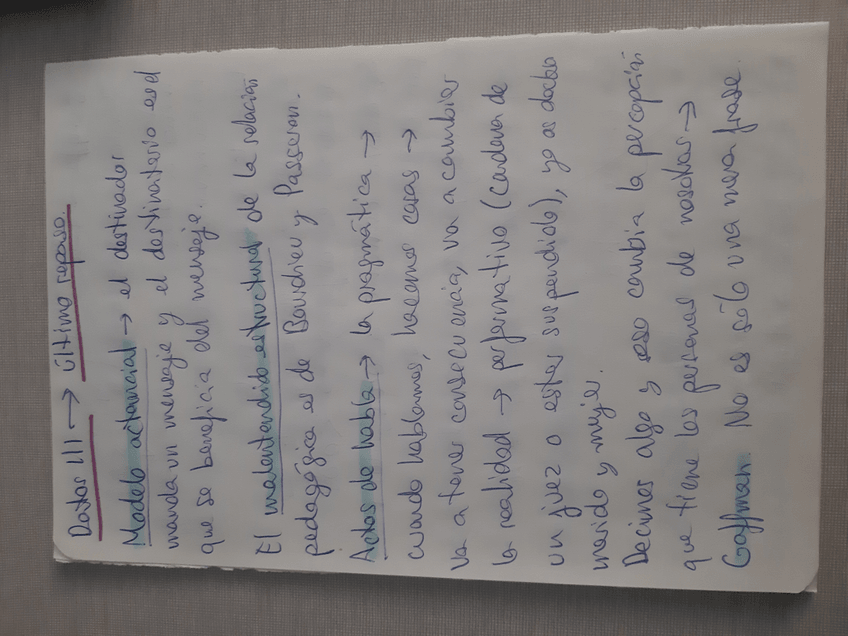 Datos III → último repaso.
Modelo actancial → el destinador
manda un mensaje y el destinatario es el
que se beneficia del mensaje.
El malentendido estructural de la relación
pedagógica es de Bourdieu y Passeron.
Actos de habla → la pragmática →
cuando hablamos, hacemos cosas →
va a tener consecuencia, va a cambiar
la realidad → performativo (cadena de
un juez o estar suspendido), yo os declaro
marido y mujer.
Decimos algo y eso cambia la percepción
que tiene las personas de nosotras →
Goffman. No es sólo una mera frase.